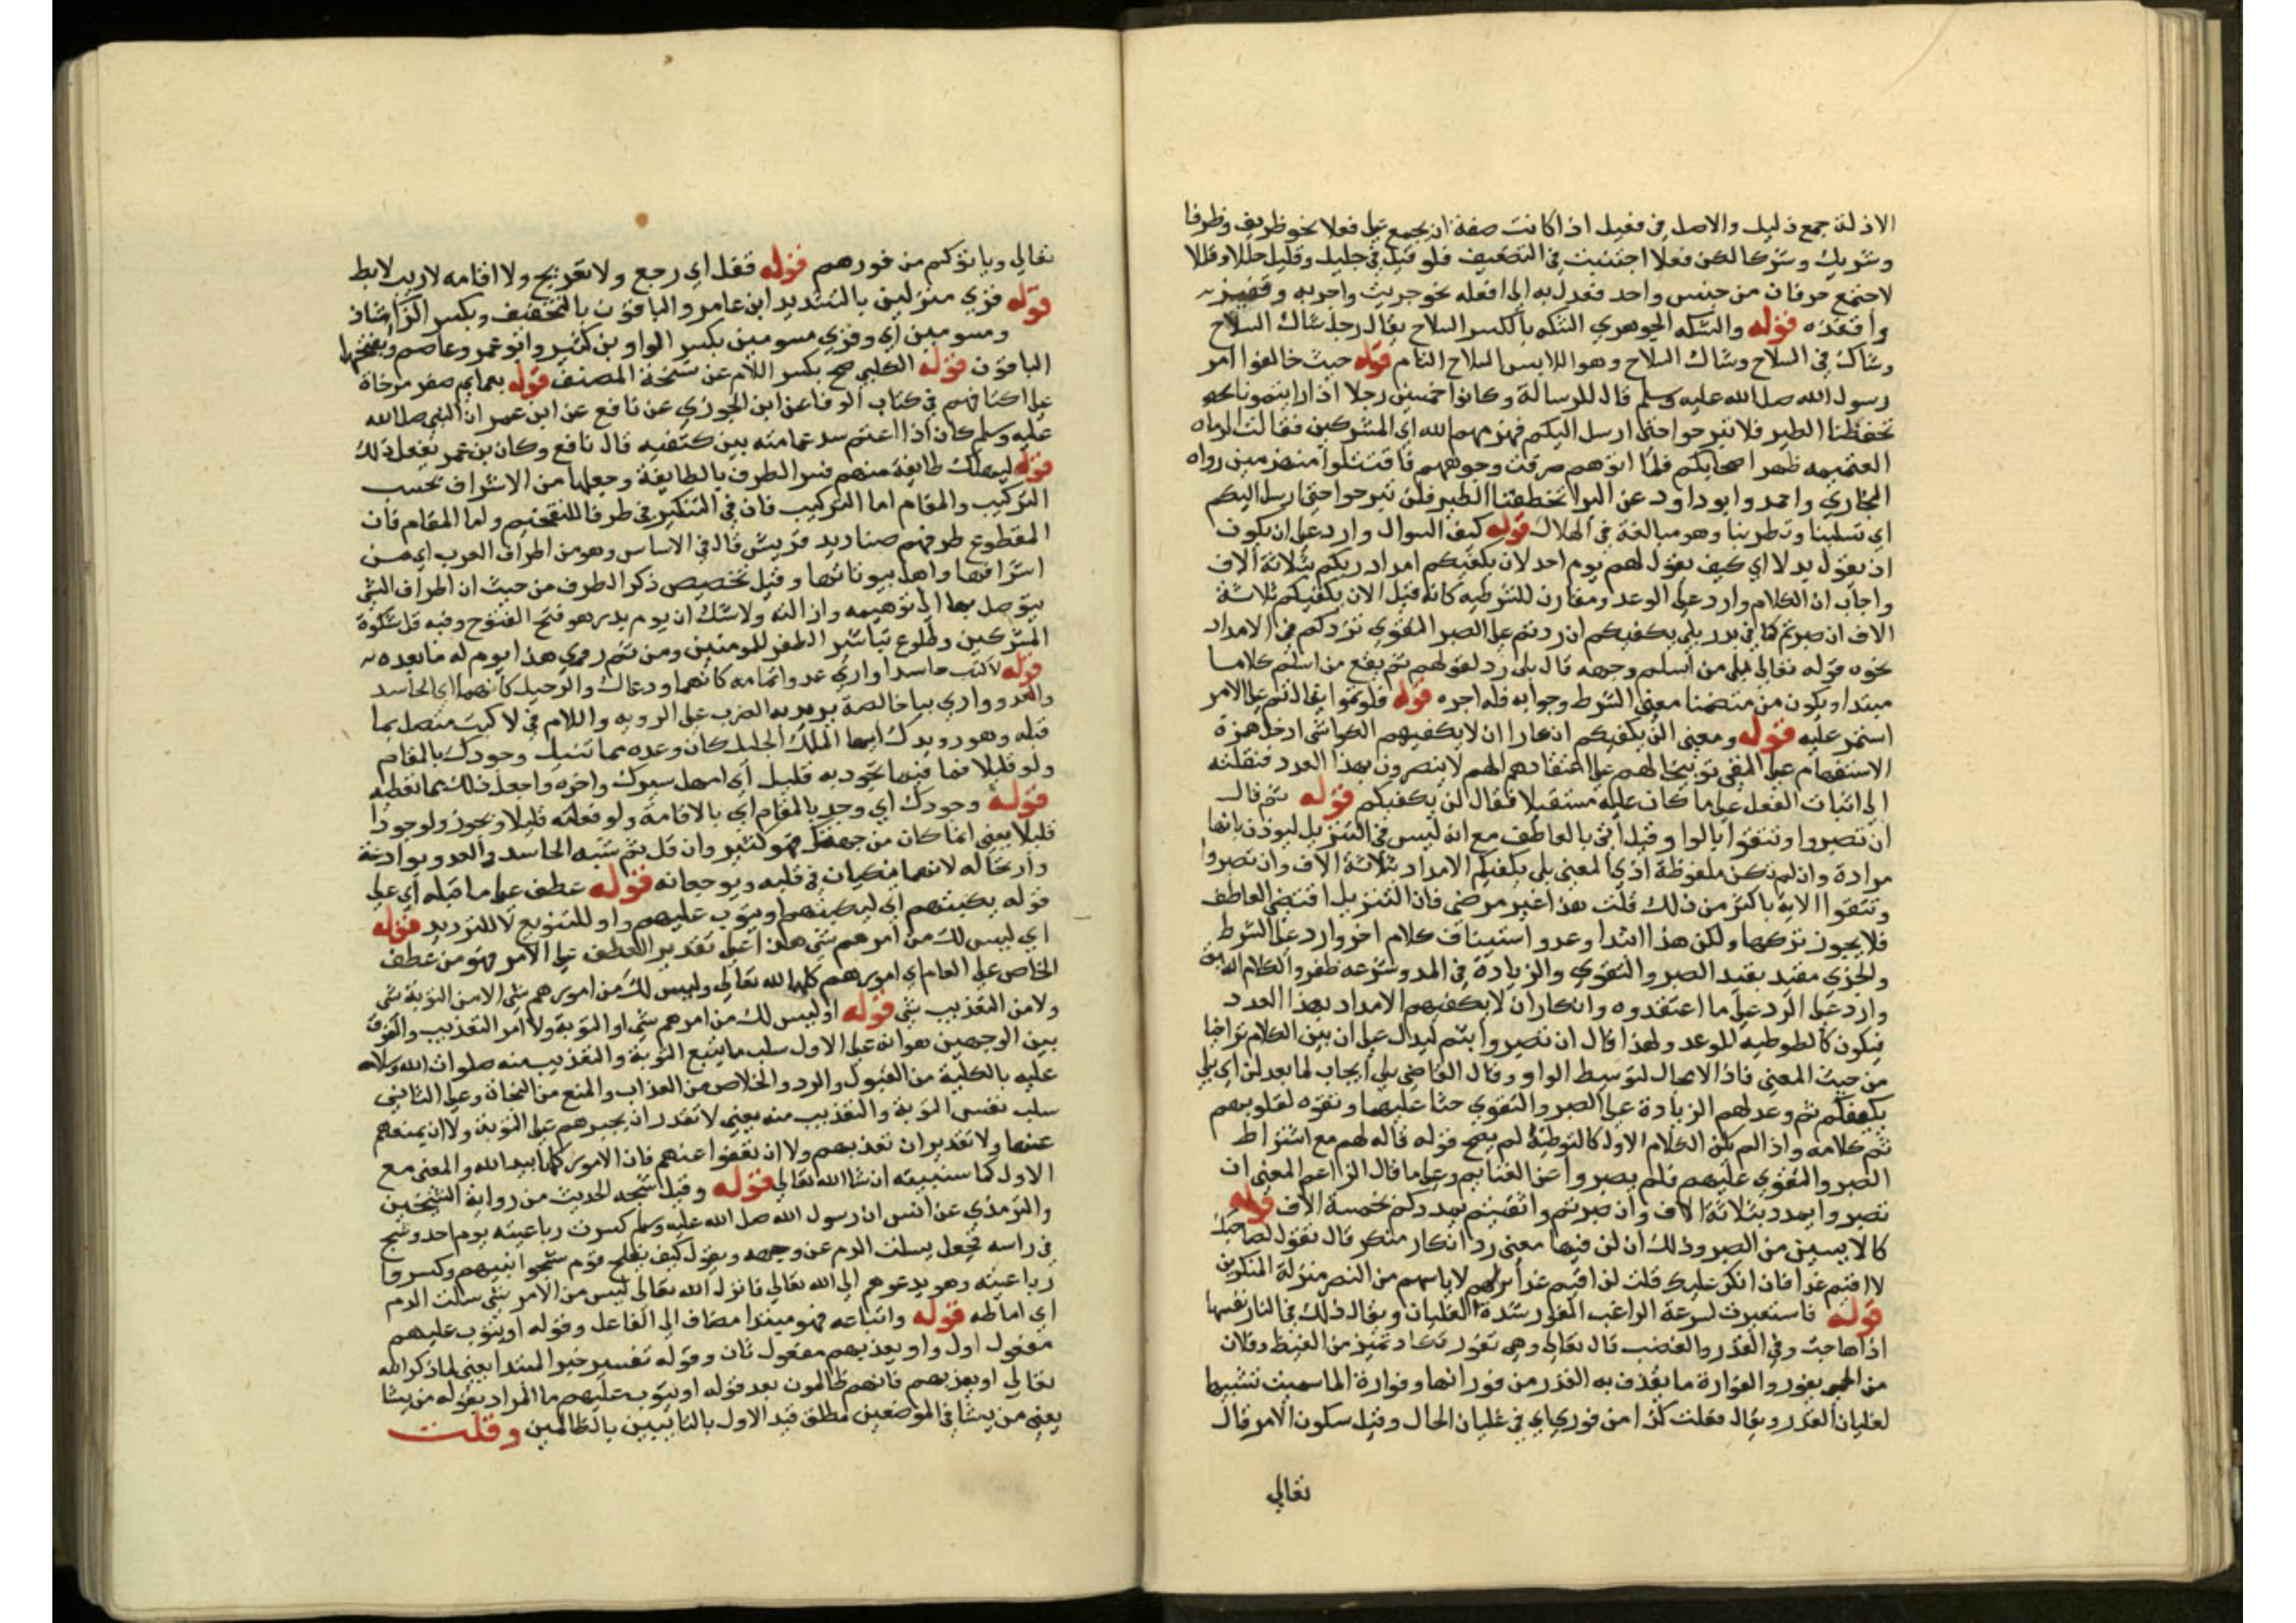 الاذلة جمع ذليل والاصل في فعيل اذا كانت صفة ان يجمع على فعلا نحو ظريف وظرفا
وشريك وشركا لكن فعلا اجتنبت في التضعيف فلو قيل في جليل وقليل جللا وقللا
لاجتمع حرفان من جنس واحد فعدل به الى افعله نحو جريب واجربه وقفيز
واقفزه قوله والشكه الجوهري الشكه بالكسر السلاح يقال رجل شاك السلاح
وشاك في السلاح وشاك السلاح وهو اللابس السلاح التام قوله حيث خالفوا امر
رسول الله صلى الله عليه وسلم قال للرسالة وكانوا خمسين رجلا اذا رايتمونا
تخطفنا الطير فلا تبرحوا حتى ارسل اليكم فهزمهم الله اي المشركين فقالت الرماه
الغنيمه ظهر اصحابكم فلما اتوهم صرفت وجوههم فاقتتلوا منهزمين رواه
البخاري واحمد وابو داود عن البرا تخطفنا الطير فلن تبرحوا حتى ارسل اليكم
اي تسلبنا وتطير بنا وهو مبالغة في الهلاك قوله كيف السوال وارد على ان يكون
ان يقول بدلا اي كيف يقول لهم يوم احد لان يكفيكم امداد ربكم بثلاثة الاف
واجاب ان الكلام وارد على الوعد ومقارن للشرطيه كانه قيل الان يكفيكم ثلاثة
الاف ان صبرتم كما في بدر بلى يكفيكم ان زدتم على الصبر التقوى نزدكم في الامداد
نحوه قوله تعالى بلى من اسلم وجهه قال بلى رد لقولهم ثم يقع من اسلم كلاما
مبتدا ويكون من متضمنا معنى الشرط وجوابه فله اجره قوله فلو تموا يقال تم على الامر
استمر عليه قوله ومعنى الن يكفيكم انكارا ان لا يكفيهم الكواشي ادخل همزة
الاستفهام على النفي توبيخا لهم على اعتقادهم انهم لا ينصرون بهذا العدد فنقلته
الى اثبات الفعل على ما كان عليه مستقبلا فقال لن يكفيكم قوله ثم قال
ان تصبروا وتتقوا بالواو قيل اتى بالعاطف مع انه ليس في التنزيل ليوذن بانها
مرادة وان لم تكن ملفوظة اذ المعنى بلى يكفيكم الامداد بثلاثة الاف وان تصبروا
وتتقوا الاية باكثر من ذلك قلت هذا غير مرضي فان التنزيل اقتضى العاطف
فلا يجوز تركها ولكن هذا ابتدا وعد واستيناف كلام اخر وارد على الشرط
والجزى مقيد بقيد الصبر والتقوى والزيادة في المدد وسرعه ظفر والكلام
وارد على الرد على ما اعتقدوه وانكار ان لا يكفيهم الامداد بهذا العدد
فيكون كالطوطيه للوعد ولهذا قال ان تصبروا بثم ليدل على ان بين الكلام تراخيا
من حيث المعنى فاذا لا مجال لتوسط الواو وقال القاضي بلى ايجاب لما بعد لن اي بلى
يكفيكم ثم وعد لهم الزيادة على الصبر والتقوى حثا عليهما وتقوه لقلوبهم
تم كلامه واذا لم يكن الكلام الاول كالتوطية لم يصح قوله قاله لهم مع اشتراط
الصبر والتقوى عليهم فلم يصبروا عن الغنايم وعلى ما قال الزاعم المعنى ان
تصبروا يمدد بثلاثة الاف وان صبرتم واتقيتم يمددكم بخمسة الاف قوله
كالايسين من النصر وذلك ان لن فيها معنى رد انكار منكر قال تقول لصاحبك
لا اقيم غدا فان انكر عليك قلت لن اقيم غدا نزلهم لاياسهم من النصر منزلة المنكرين
قوله فاستعيرت لسرعة الراغب الفور شدة الغليان ويقال ذلك في النار نفسها
اذا هاجت وفي القدر والغضب قال تعالى وهي تفور تكاد تميز من الغيظ وفلان
من الحمى يفور والفوارة ما يقذف به القدر من فورانها وفوارة الماء سميت تشبيها
لغليان القدر ويقال فعلت كذا من فوري اي في غليان الحال وقيل سكون الامر قال
تعالى
تعالى وياتوكم من فورهم قوله قفل اي رجع ولا تعريج ولا اقامه لا ريب لابط
قوله قري منزلين بالتشديد ابن عامر والباقون بالتخفيف وبكسر الزا شاذ
ومسومين اي وقري مسومين بكسر الواو بن كثير وابو عمر وعاصم وبفتحها
الباقون قوله الكلبي صح بكسر اللام عن نسخة المصنف قوله بعمايم صفر مرخاة
على اكتافهم في كتاب الوفا عن ابن الجوزي عن نافع عن ابن عمر ان النبي صلى الله
عليه وسلم كان اذا اعتم سدل عمامته بين كتفيه قال نافع وكان بن عمر يفعل ذلك
قوله ليهلك طايفة منهم فسر الطرف بالطايفة وجعلها من الاشراف بحسب
التركيب والمقام اما التركيب فان في التنكير في طرفا للتفخيم واما المقام فان
المقطوع طرفهم صناديد قريش قال في الاساس وهو من اطراف العرب اي من
اشرافها واهل بيوتاتها وقيل تخصيص ذكر الطرف من حيث ان اطراف الشي
يتوصل بها الى توهينه وازالته ولا شك ان يوم بدر هو فتح الفتوح وفيه فل شوكة
المشركين وطلوع تباشير الظفر للمومنين ومن ثم رمي هذا يوم له ما بعده
قوله لاكبت حاسدا واري عدوا تمامه كانهما وداعك والرحيل كانهما اي الحاسد
والعدو واري بيا خالصة يريد به الضرب على الرويه واللام في لاكبت متصل بما
قبله وهو رويدك ايها الملك الجليل كان وعده مما تنيل وجودك بالمقام
ولو قليلا فما فيما تجود به قليل اي امهل سيرك واخره واجعل ذلك مما تعطيه
قوله وجودك اي وجد بالمقام اي بالاقامة ولو فعلته قليلا ويجوز ولو جودا
قليلا يعني انما كان من جهتك فهو كثير وان قل ثم شبه الحاسد والعدو بوادعة
وارتحاله لانهما ينكيان في قلبه ويوجعانه قوله عطف على ما قبله اي على
قوله يكبتهم اي ليكبتهم او يتوب عليهم واو للتنويع لا للترديد قوله
اي ليس لك من امرهم شي هذا على تقدير العطف على الامر فهو من عطف
الخاص على العام اي امورهم كلها لله تعالى وليس لك من امورهم شي الا من التوبة شي
ولا من التعذيب شي قوله او ليس لك من امرهم شي او التوبة ولا امر التعذيب والفرق
بين الوجهين هو انه على الاول سلب ما يتبع التوبة والتعذيب منه صلوات الله وسلامه
عليه بالكلية من القبول والرد والخلاص من العذاب والمنع من النجاة وعلى الثاني
سلب نفس التوبة والتعذيب منه يعني لا تقدر ان يجبرهم على التوبة ولا ان يمنعهم
عنها ولا تقدير ان تعذبهم ولا ان تعفوا عنهم فان الامور كلها بيد الله والمعنى مع
الاول كما سنبينه ان شا الله تعالى قوله وقيل شجه الحديث من رواية الشيخين
والترمذي عن انس ان رسول الله صلى الله عليه وسلم كسرت رباعيته يوم احد وشج
في راسه فجعل يسلت الدم عن وجهه ويقول كيف يفلح قوم شجوا نبيهم وكسروا
رباعيته وهو يدعوهم الى الله تعالى فانزل الله تعالى ليس من الامر شي سالت الدم
اي اماطه قوله واتباعه فهو مبتدا مضاف الى الفاعل وقوله او يتوب عليهم
مفعول اول واو يعذبهم مفعول ثان وقوله تفسير خبر المبتدا يعني لما ذكر الله
تعالى او يعذبهم فانهم ظالمون بعد قوله او يتوب عليهم ما المراد بقوله من يشا
يعني من يشا في الموضعين مطلق قيد الاول بالتايبين بالظالمين وقلت